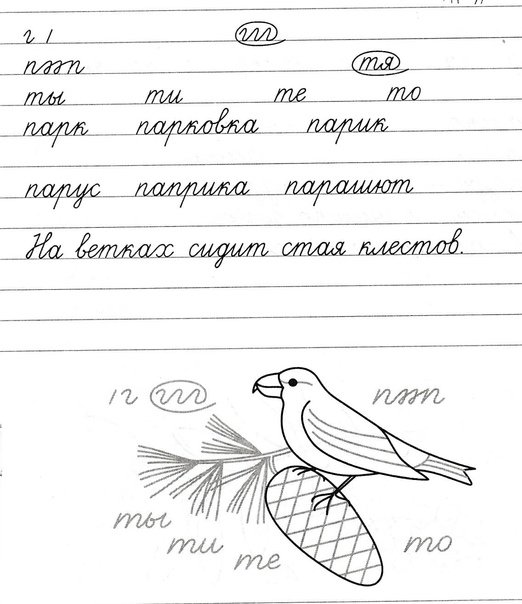 г ı ггг
пэт тя
ты ти те то
парк парковка парик
парус паприка парашют
На ветках сидит стая клестов.
ıг ггг
ты
ти
те
то